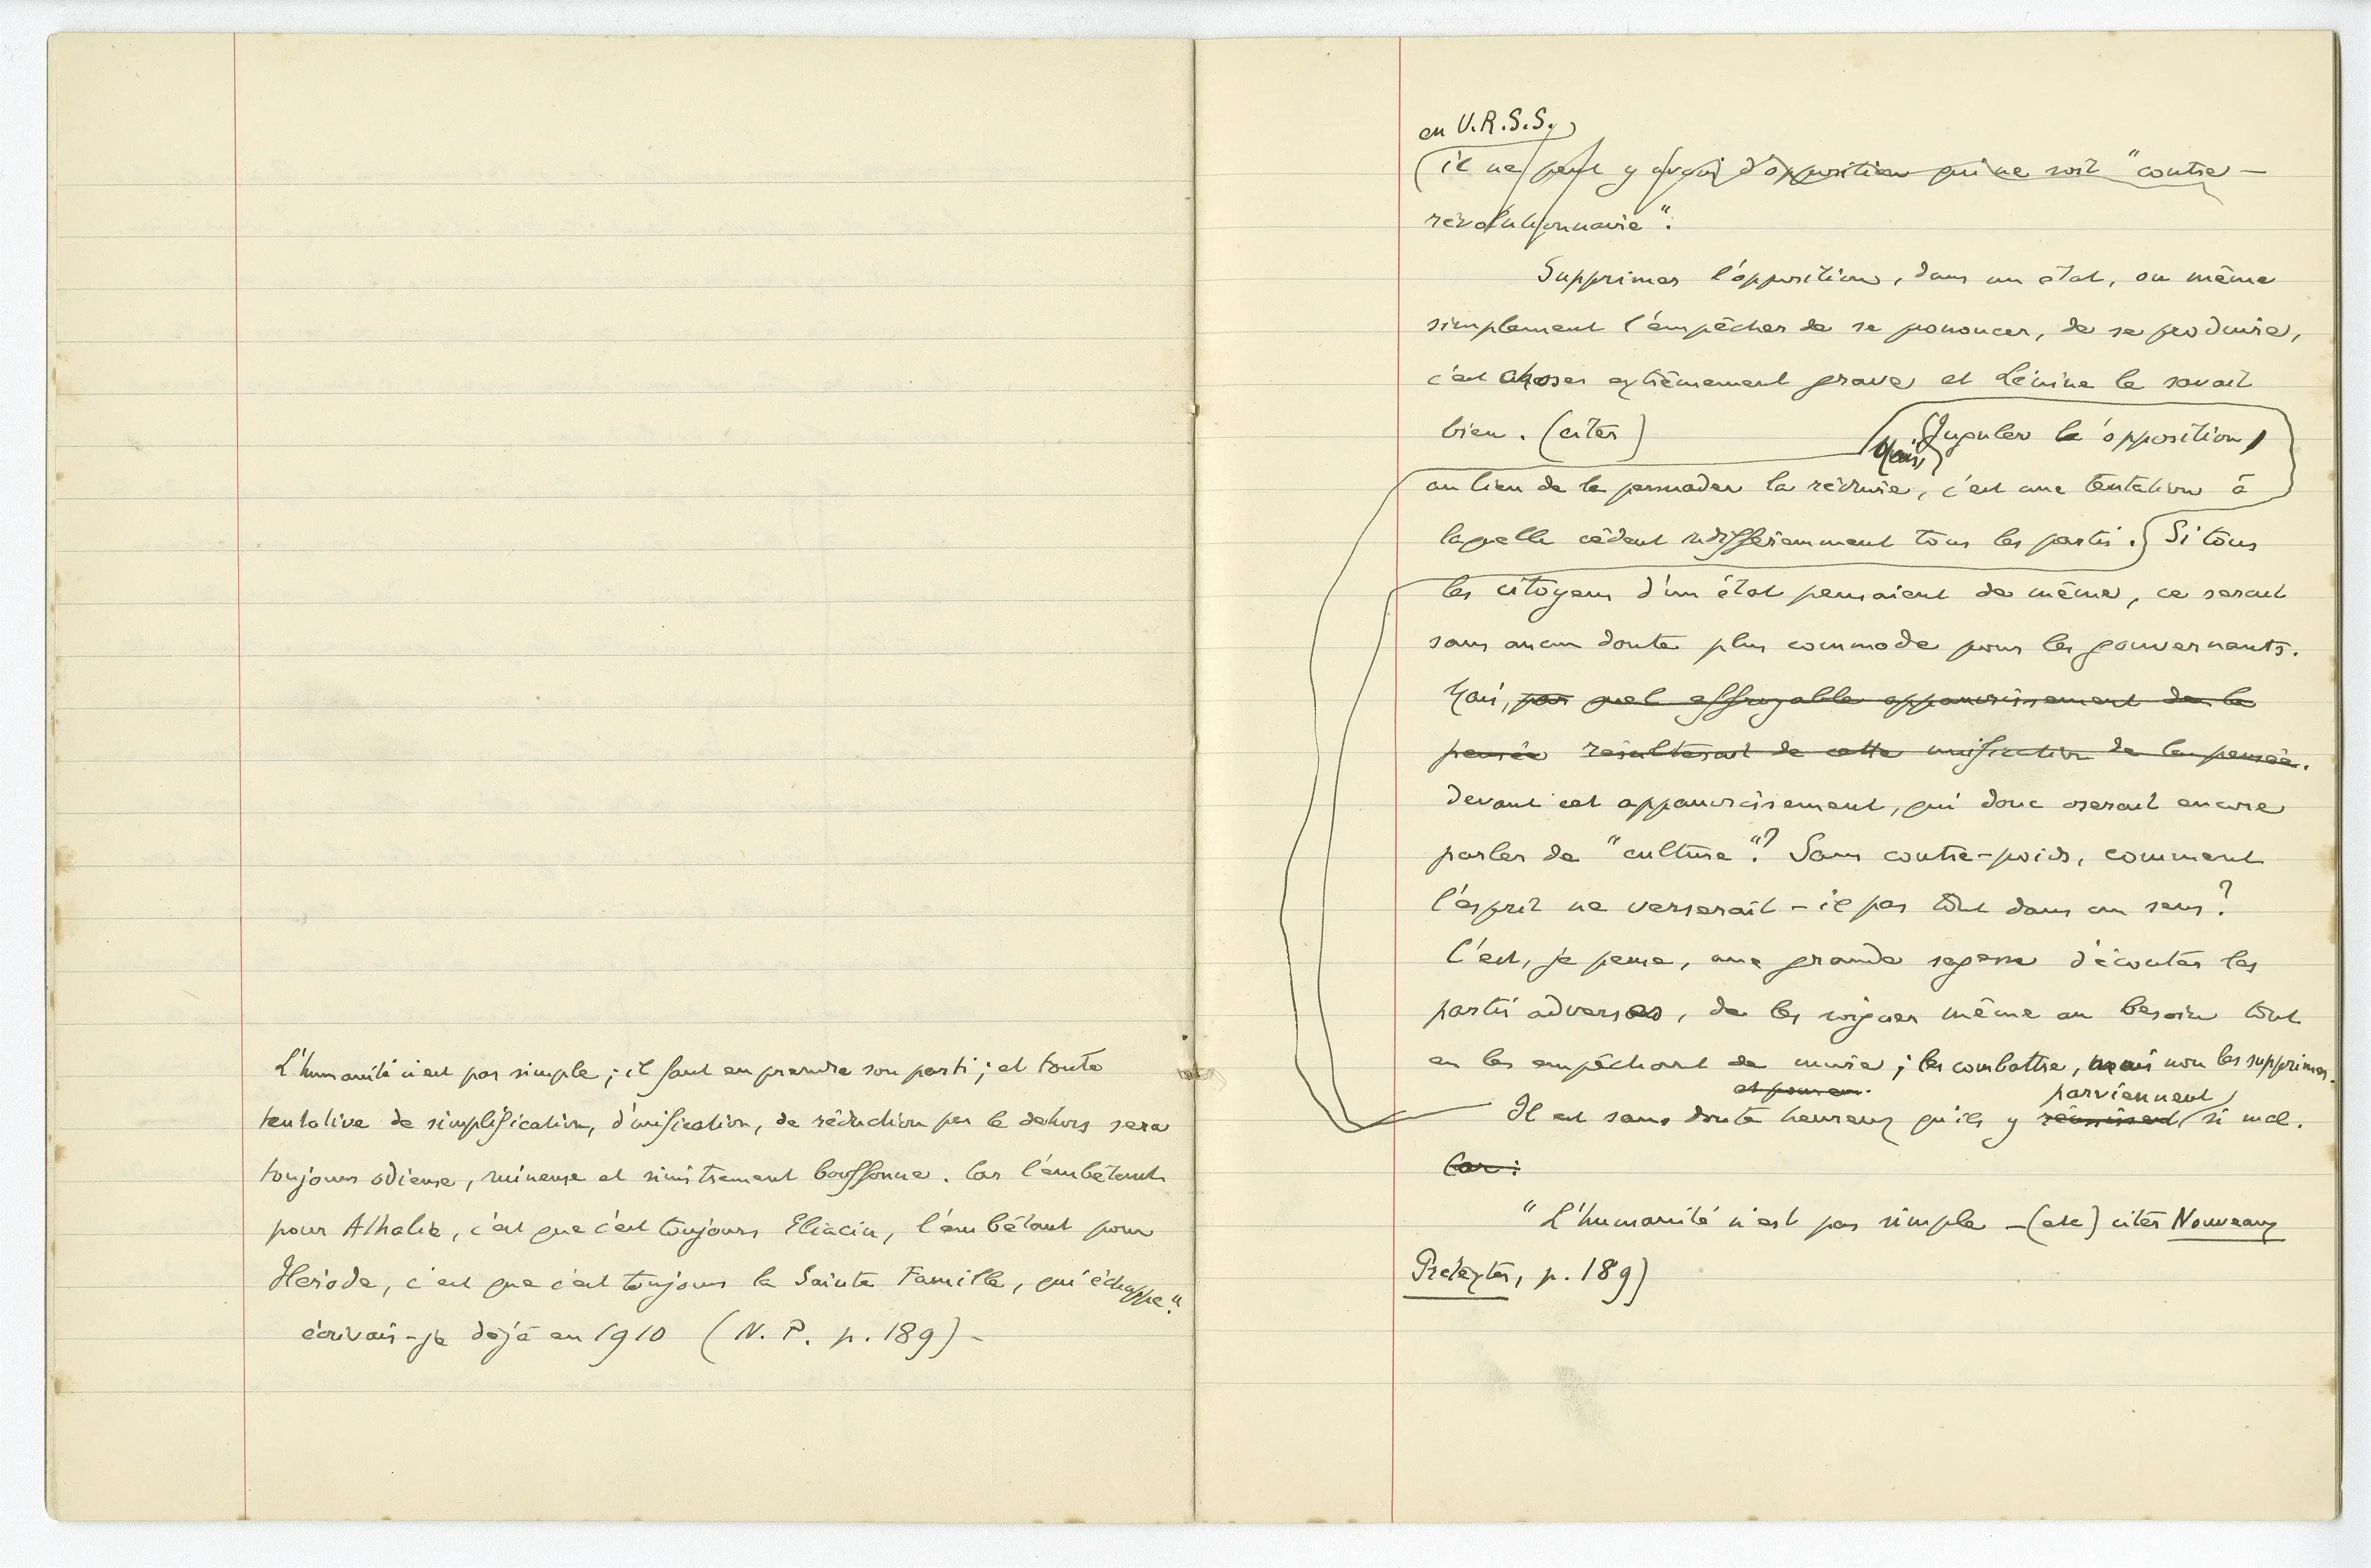 L'humanité n'est pas simple ; il faut en prendre son parti ; et toute
tentative de simplification, d'unification, de réduction par le dehors sera
toujours odieuse, ruineuse et sinistrement bouffonne. Car l'embêtant
pour Athalie, c'est que c'est toujours Eliacin, l'embêtant pour
Hérode, c'est que c'est toujours la Sainte Famille, qui échappe."
écrivais-je déjà en 1910 (N. P. p. 189) -
en U.R.S.S.,
(il ne peut y avoir d'opposition qui ne soit "contre-
révolutionnaire".
Supprimer l'opposition, dans un état, ou même
simplement l'empêcher de se prononcer, de se produire,
c'est chose extrêmement grave et Lénine le savait
bien. (citer) Juguler l'opposition,
Mais,
au lieu de la persuader la réduire, c'est une tentation à
laquelle cèdent indifféremment tous les partis. Si tous
les citoyens d'un état pensaient de même, ce serait
sans aucun doute plus commode pour les gouvernants.
Mais, par quel effroyable appauvrissement de la
pensée résulterait de cette unification de la pensée.
devant cet appauvrissement, qui donc oserait encore
parler de "culture"? Sans contre-poids, comment
l'esprit ne verserait-il pas tout dans un sens?
C'est, je pense, une grande sagesse d'écouter les
partis adverses, de les soigner même au besoin tout
en les empêchant de nuire ; les combattre, mais non les supprimer.
parviennent
Il est sans doute heureux qu'ils y réussissent si mal.
Car :
"L'humanité n'est pas simple - (etc) citer Nouveaux
Prétextes, p. 189)